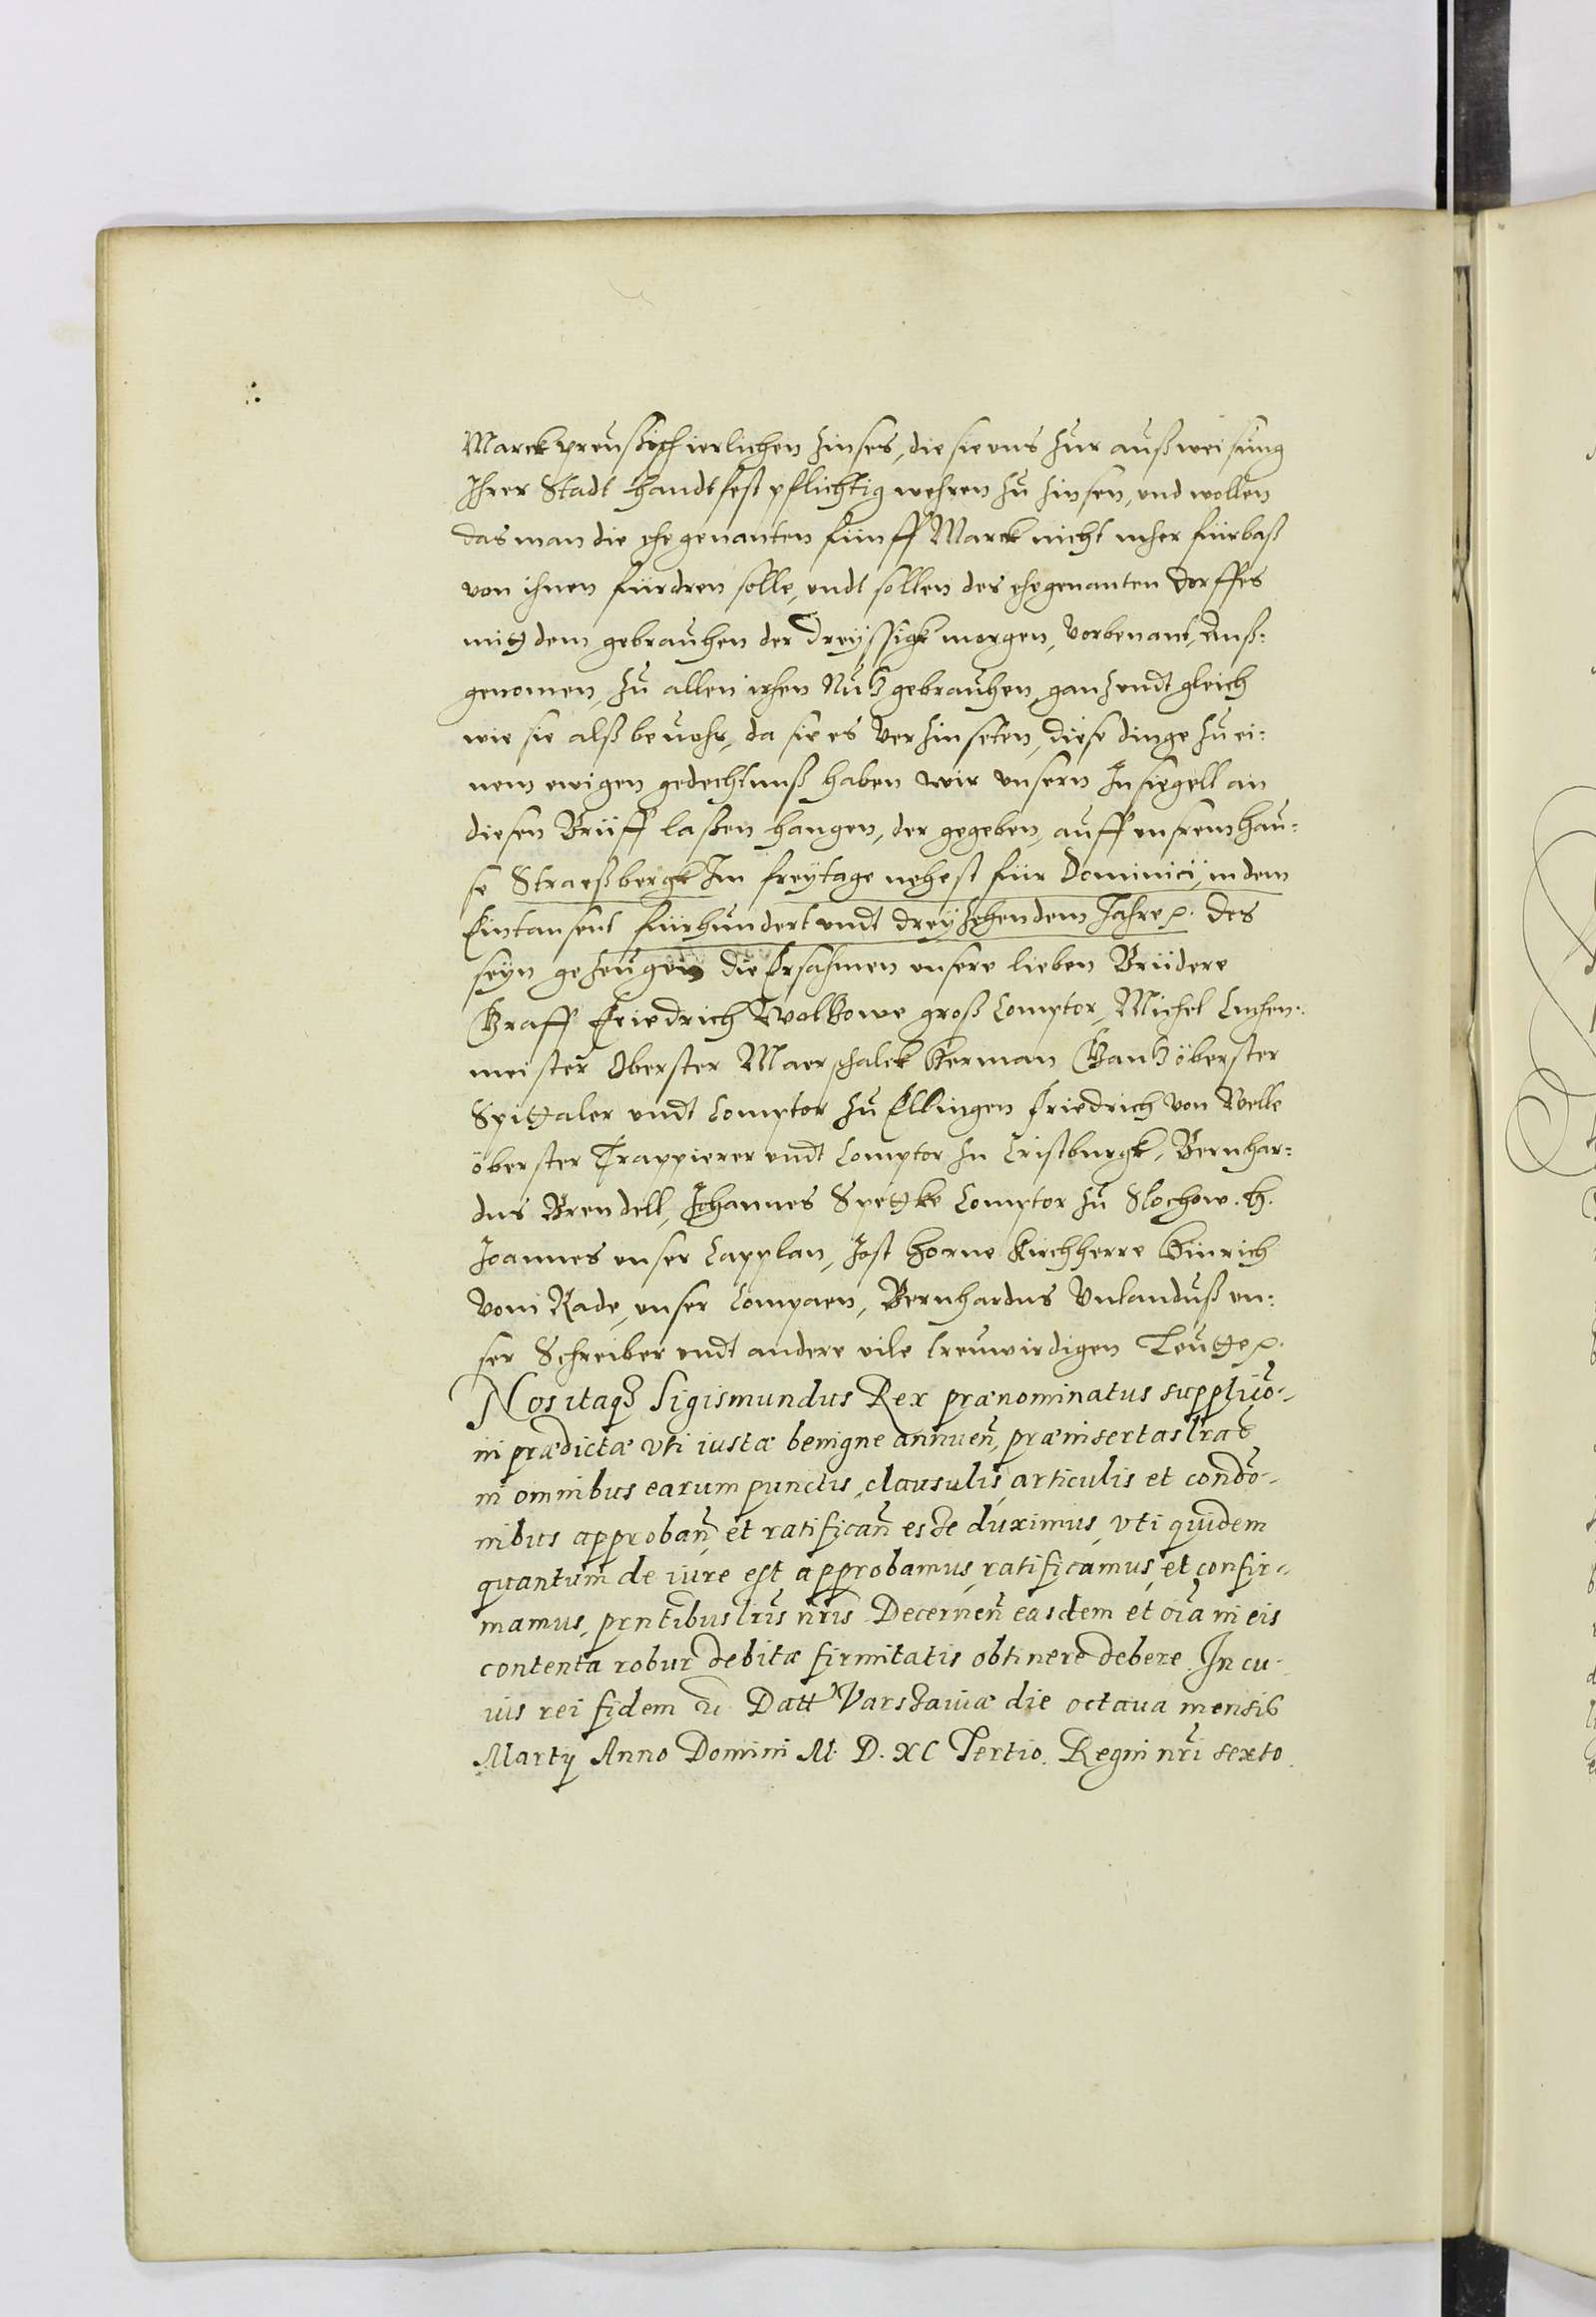 Marck preußisch ierlichen Zinses, die sie vns zur außweisung
Ihrer Stadt handtfest pflichtig wehren zu zinsen, vnd wollen
das man die ehegenanten fünff Marck nicht mher fürbaß
von ihnen fürdren solle, vndt sollen des ehegenanten dorffes
mitt dem gebrauchen der dreyssigk morgen, vorbenant, auß-
genomen, zu allen irhen Nutz gebrauchen, ganz vndt gleich
wie sie alß beuohr, da sie es verzinseten, diese dinge zu ei-
nem ewigen gedechtnuß haben wir vnsern Insiegell an
diesen Brüff laßen hangen, der gegeben, auff vnsrem hau-
se Straeßbergk Im freytage nehest für Dominicÿ, in dem
Eintausent fürhundert vndt dreyzehendem Jahre p. des
seyn gezeugen die Ersahmen vnsere lieben Brüdere
Graff Friedrich Wolkowe groß Comptor, Michel Cuchen-
meister Oberster Maerschalck Herman Gantz öberster
Spittaler vndt Comptor zu Elbingen Friedrich von Welle
öberster Trappierer vndt Comptor zu Cristburgk, Bernhar-
dus Brendell, Johannes Spettke Comptor zu Slochow. H.
Joannes vnser Capplan, Jost Horne Kirchherre Hinrich
vom Rade, vnser Compaen, Bernhardus Vnlanduß vn-
ser Schreiber vndt andere vile treuwirdigen Leutte p.
Nos itaq3 Sigismundus Rex prænominatus supplicō-
ni prædictæ vti iustæ benigne annuen̄, præinsertas lr̄as
in omnibus earum punctis, clausulis, articulis et condō-
nibus approban̄, et ratifican̄ esse duximus, vti quidem
quantum de iure est approbamus, ratificamus, et confir-
mamus, prn̄tibus lr̄is nr̄is Decernen̄ easdem et oīa in eis
contenta robur debitæ firmitatis obtinere debere. In cu-
ius rei fidem &c Datt Varszauiæ die octaua mensis
Martij Anno Domini M. D. XC Tertio. Regni nr̄i sexto.